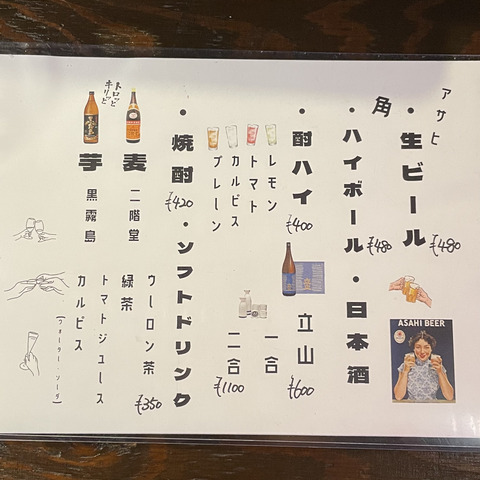 アサヒ
・生ビール ¥480
角
・ハイボール ¥480
・日本酒
立山
一合 ¥600
二合 ¥1100
・酎ハイ ¥400
レモン
トマト
カルピス
プレーン
・焼酎 ¥420
麦 二階堂
トロッと
キリッと
芋 黒霧島
・ソフトドリンク
ウーロン茶 ¥350
緑茶
トマトジュース
カルピス
(ウォーター・ソーダ)
ASAHI BEER